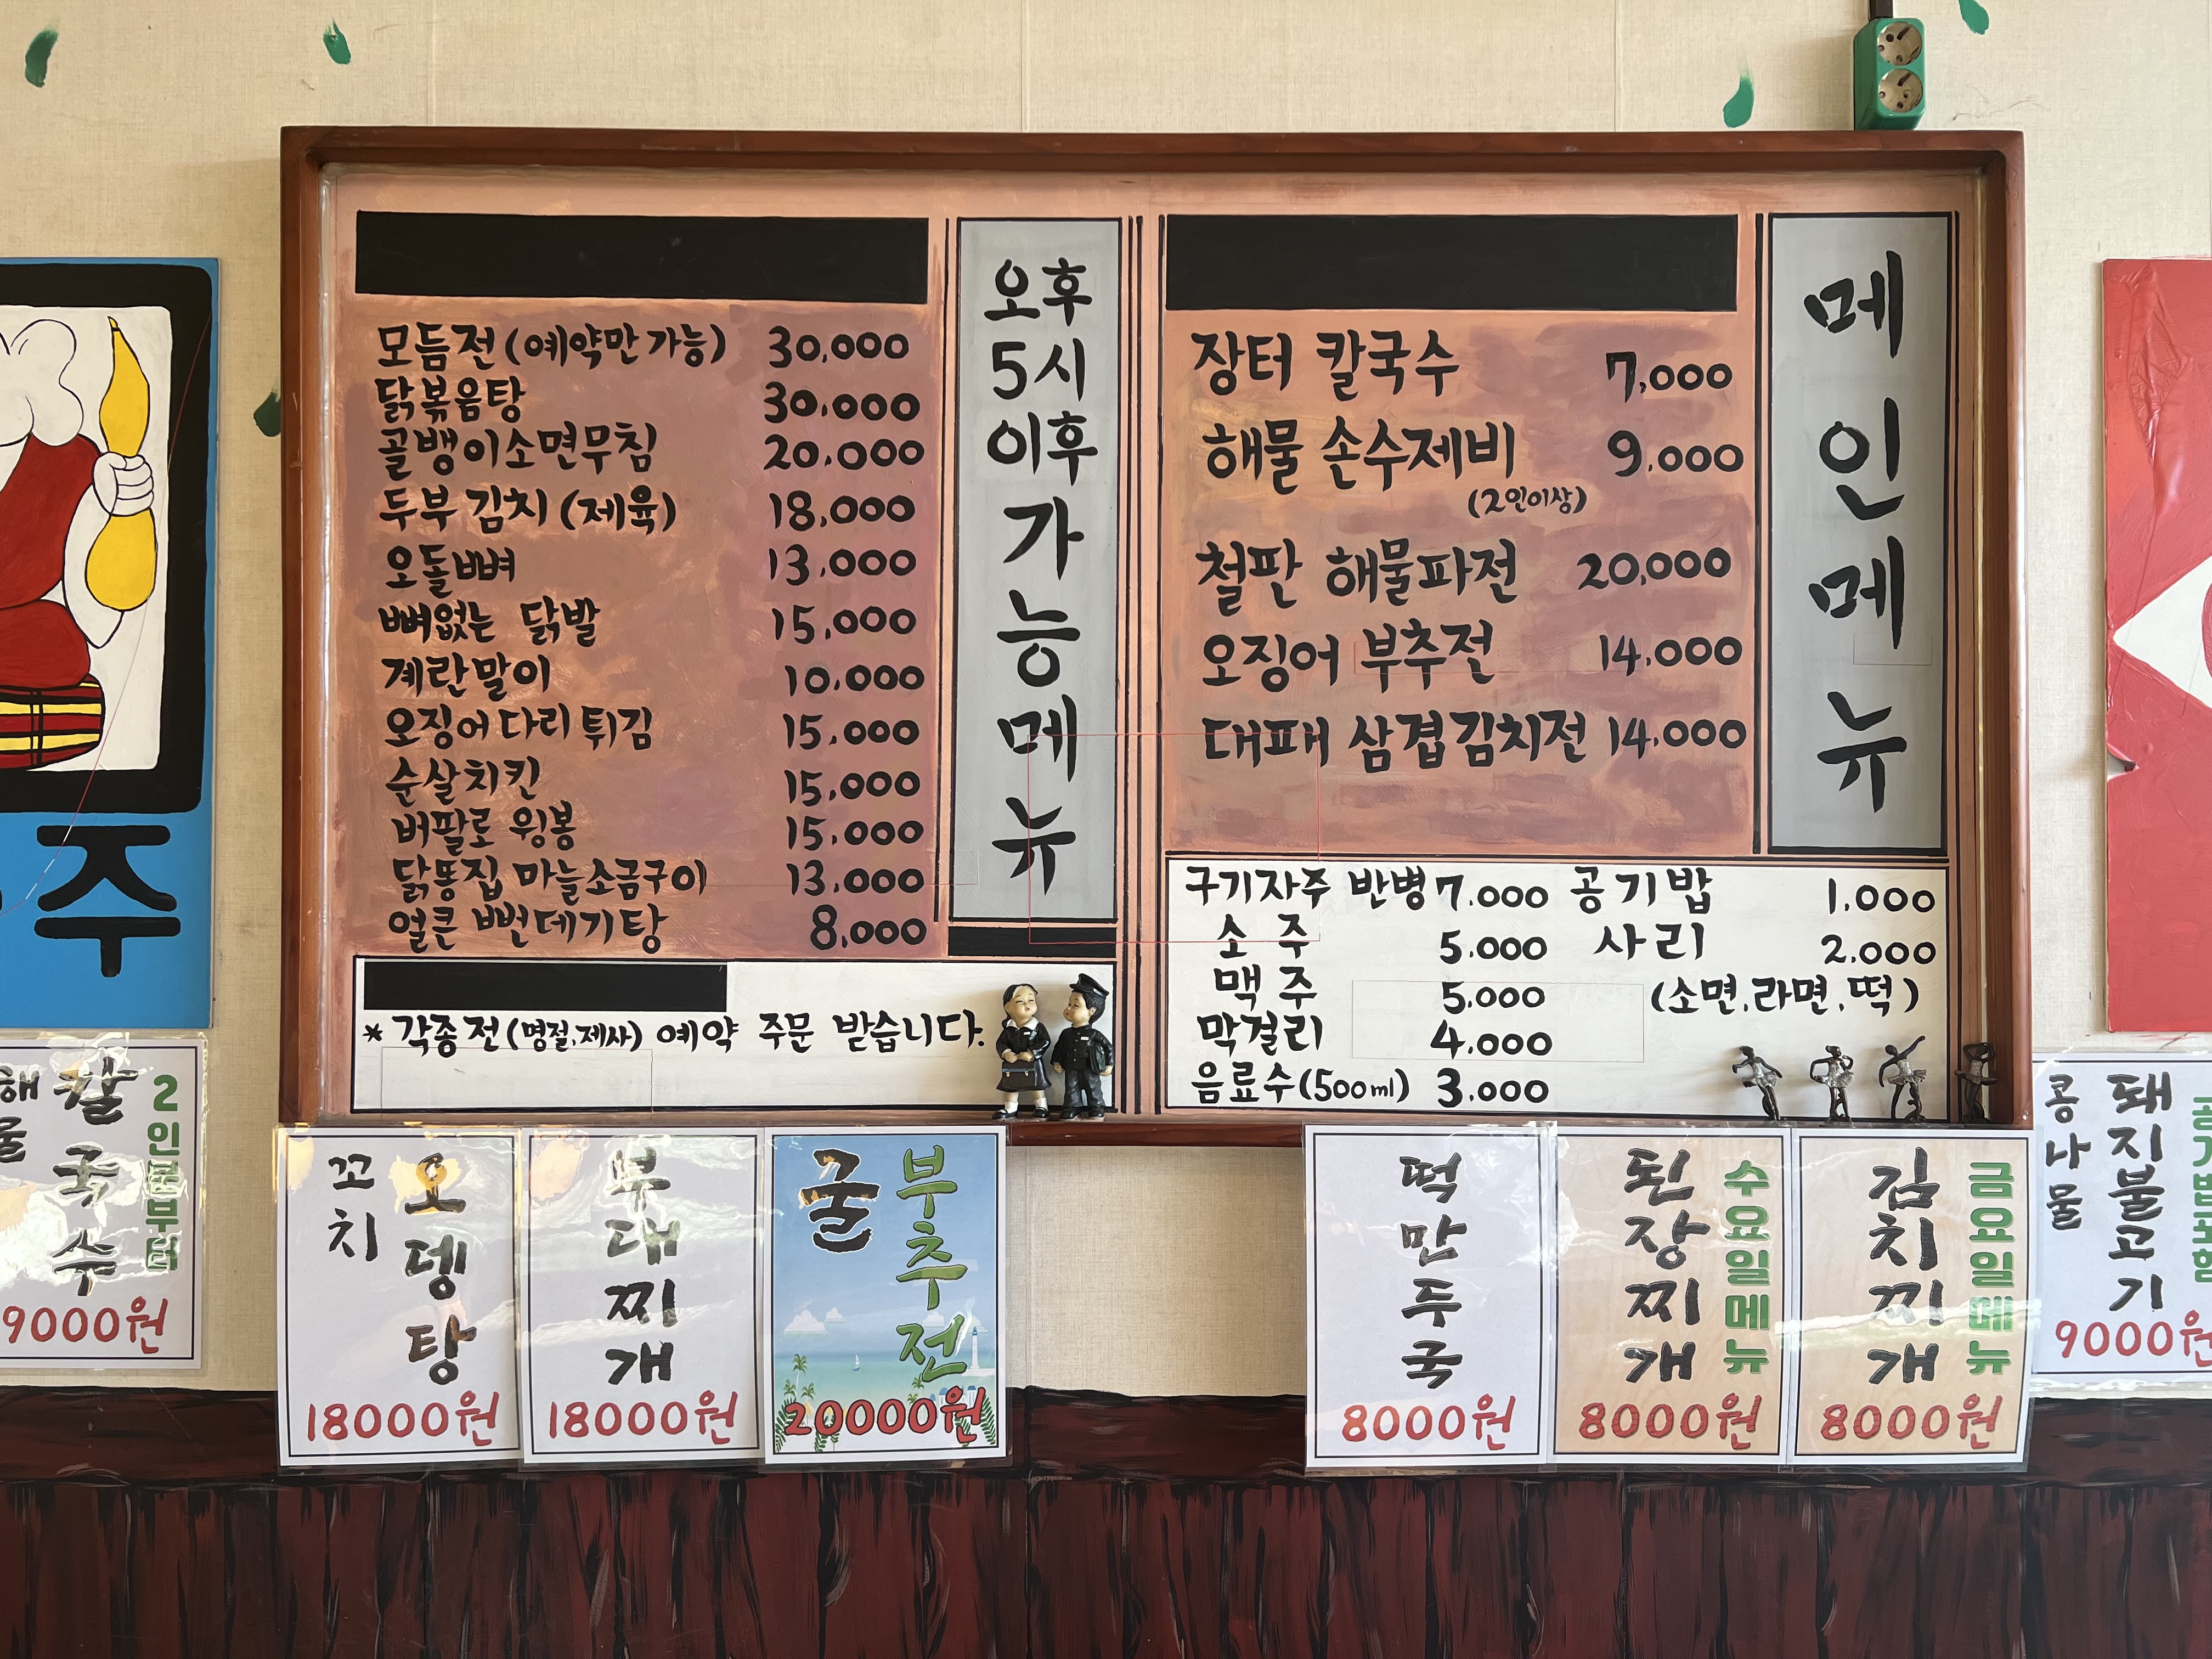 모듬전 (예약만 가능) 30,000
닭볶음탕 30,000
골뱅이소면무침 20,000
두부 김치 (제육) 18,000
오돌뼈 13,000
뼈없는 닭발 15,000
계란말이 10,000
오징어다리 튀김 15,000
순살치킨 15,000
버팔로 윙봉 15,000
닭똥집 마늘소금구이 13,000
얼큰 뻔데기탕 8,000
오후
5시
이후
가
능
메
뉴
* 각종전 (명절,제사) 예약 주문 받습니다.
장터 칼국수 7,000
해물 손수제비 9,000
(2인이상)
철판 해물파전 20,000
오징어 부추전 14,000
대패 삼겹김치전 14,000
메
인
메
뉴
구기자주 반병 7,000 공기밥 1,000
소 주 5,000 사리 2,000
맥 주 5,000 (소면,라면,떡)
막걸리 4,000
음료수 (500ml) 3,000
주
해물
칼국수
2인분부터
9000원
꼬치
오뎅탕
18000원
부대찌개
18000원
굴
부추전
20000원
떡만두국
8000원
된장찌개
수요일메뉴
8000원
김치찌개
금요일메뉴
8000원
콩나물
돼지불고기
공기밥포함
9000원